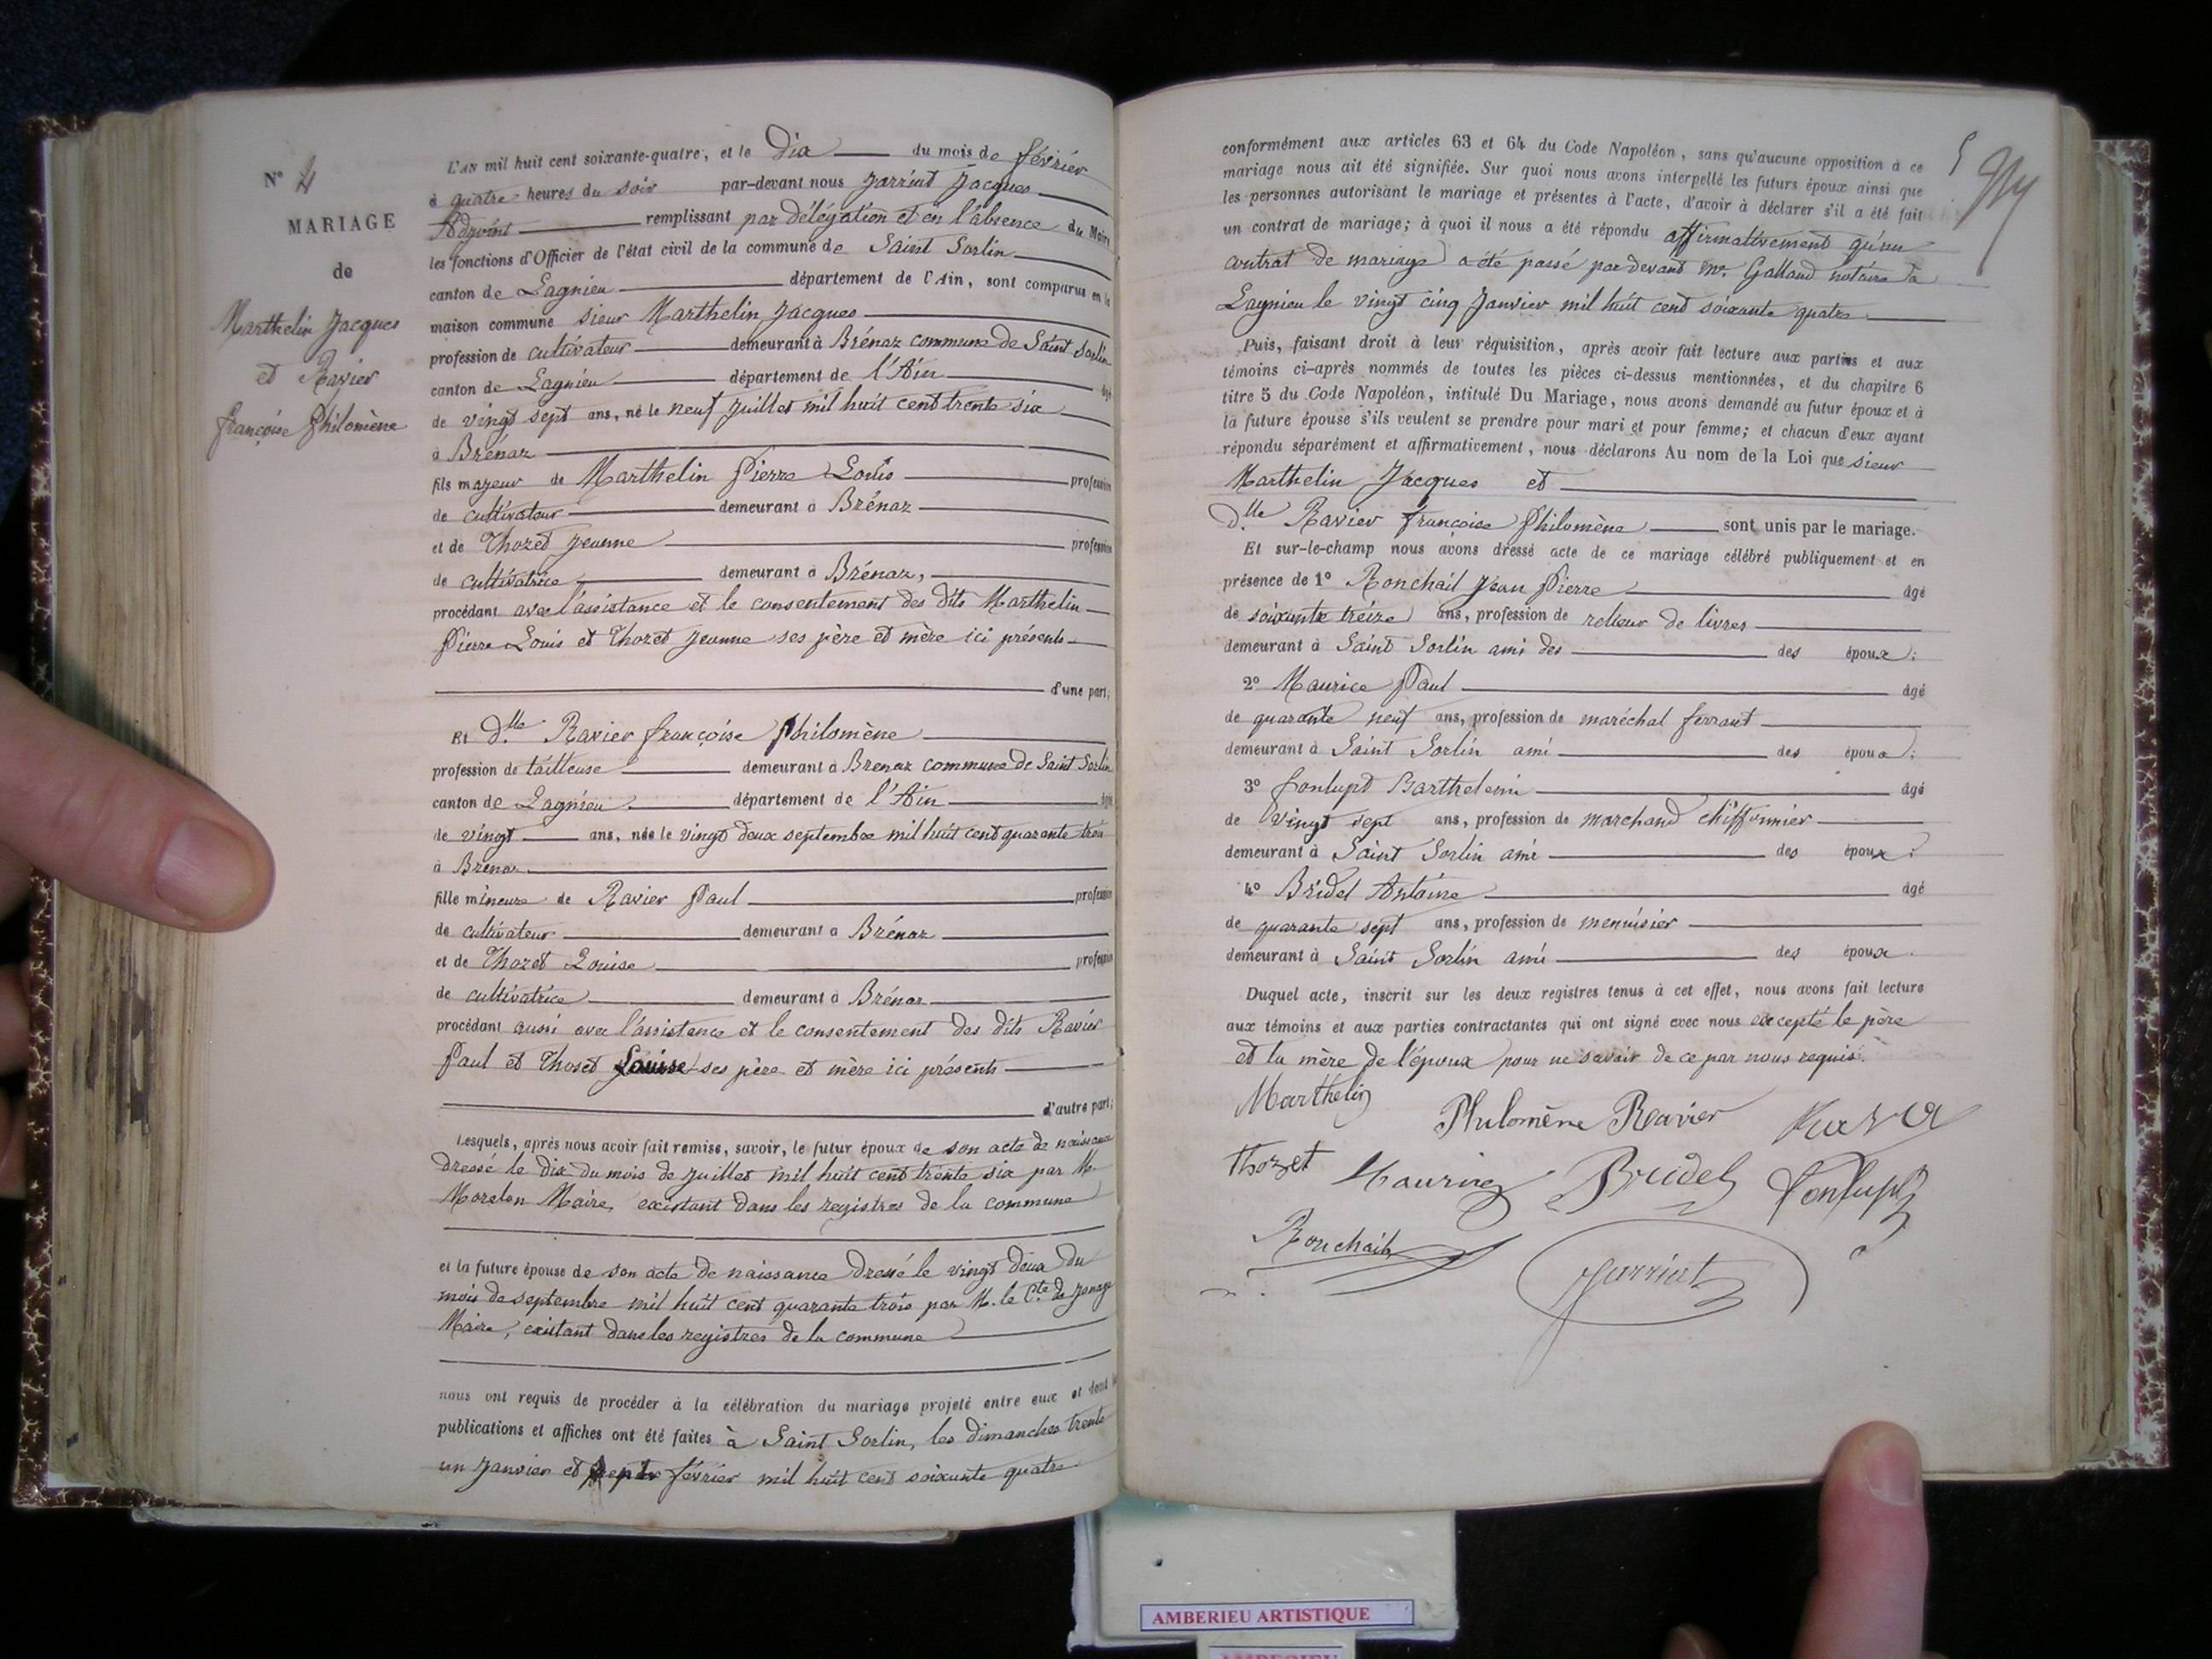 N° 4
MARIAGE
de
Marthelin Jacques
et Ravier
françoise philomène
L'AN mil huit cent soixante-quatre, et le dix du mois de février
à quatre heures du soir par-devant nous Jarriat Jacques
Adjoint remplissant par délégation et en l'absence du Maire
les fonctions d'Officier de l'état civil de la commune de Saint Sorlin
canton de Lagnieu département de l'Ain, sont comparus en la
maison commune sieur Marthelin Jacques
profession de cultivateur demeurant à Brénaz commune de Saint Sorlin
canton de Lagnieu département de l'Ain âgé
de vingt sept ans, né le neuf Juillet mil huit cent trente six
à Brénaz
fils majeur de Marthelin Pierre Louis profession
de cultivateur demeurant à Brénaz
et de Thozet Jeanne profession
de cultivatrice demeurant à Brénaz,
procédant avec l'assistance et le consentement des dits Marthelin
Pierre Louis et Thozet Jeanne ses père et mère ici présents
d'une part;
Et dlle Ravier françoise Philomène
profession de tailleuse demeurant à Brenaz commune de Saint Sorlin
canton de Lagnieu département de l'Ain âgée
de vingt ans, née le vingt deux septembre mil huit cent quarante trois
à Brénaz
fille mineure de Ravier Paul profession
de cultivateur demeurant à Brénaz
et de Thozet Louise profession
de cultivatrice demeurant à Brénaz
procédant aussi avec l'assistance et le consentement des dits Ravier
Paul et Thozet Louise ses père et mère ici présents
d'autre part;
Lesquels, après nous avoir fait remise, savoir, le futur époux de son acte de naissance
dressé le dix du mois de Juillet mil huit cent trente six par M.
Morelon Maire, existant dans les registres de la commune
et la future épouse de son acte de naissance dressé le vingt deux du
mois de septembre mil huit cent quarante trois par M. le Cte de
Maire, existant dans les registres de la commune
nous ont requis de procéder à la célébration du mariage projeté entre eux et dont les
publications et affiches ont été faites à Saint Sorlin, les dimanches trente
un Janvier et sept février mil huit cent soixante quatre
conformément aux articles 63 et 64 du Code Napoléon, sans qu'aucune opposition à ce
mariage nous ait été signifiée. Sur quoi nous avons interpellé les futurs époux ainsi que
les personnes autorisant le mariage et présentes à l'acte, d'avoir à déclarer s'il a été fait
un contrat de mariage; à quoi il nous a été répondu affirmativement qu'un
contrat de mariage a été passé par devant Me Galland notaire à
Lagnieu le vingt cinq Janvier mil huit cent soixante quatre
Puis, faisant droit à leur réquisition, après avoir fait lecture aux parties et aux
témoins ci-après nommés de toutes les pièces ci-dessus mentionnées, et du chapitre 6
titre 5 du Code Napoléon, intitulé Du Mariage, nous avons demandé au futur époux et à
la future épouse s'ils veulent se prendre pour mari et pour femme; et chacun d'eux ayant
répondu séparément et affirmativement, nous déclarons Au nom de la Loi que sieur
Marthelin Jacques et
dlle Ravier françoise Philomène sont unis par le mariage.
Et sur-le-champ nous avons dressé acte de ce mariage célébré publiquement et en
présence de 1° Ronchail Jean Pierre âgé
de soixante treize ans, profession de relieur de livres
demeurant à Saint Sorlin ami des des époux;
2° Maurice Paul âgé
de quarante neuf ans, profession de maréchal ferrant
demeurant à Saint Sorlin ami des époux;
3° Fontupt Barthelemi âgé
de vingt sept ans, profession de marchand chiffonnier
demeurant à Saint Sorlin ami des époux;
4° Bridel Antoine âgé
de quarante sept ans, profession de menuisier
demeurant à Saint Sorlin ami des époux.
Duquel acte, inscrit sur les deux registres tenus à cet effet, nous avons fait lecture
aux témoins et aux parties contractantes qui ont signé avec nous excepté le père
et la mère de l'époux pour ne savoir de ce par nous requis.
Marthelin Philomène Ravier
Thozet Maurice Bridel Fontupt
Ronchail Jarriat
AMBERIEU ARTISTIQUE